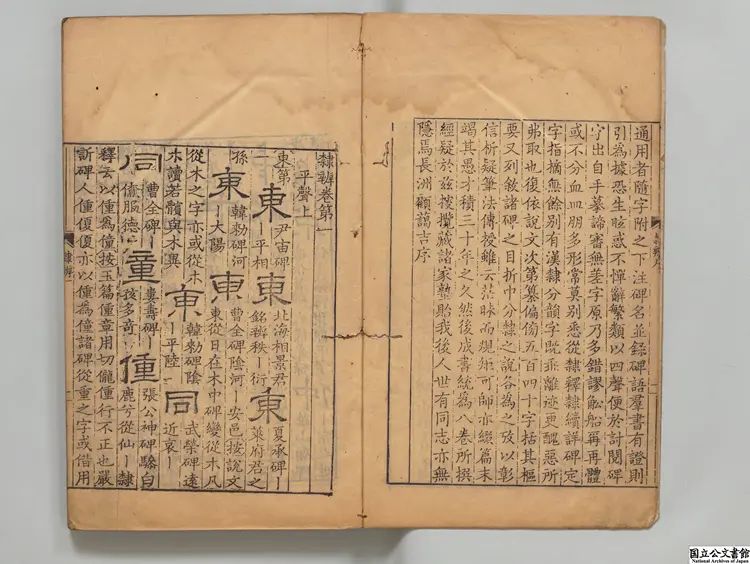 通用者隨字附之下注碑名並録碑語羣書有證則
引為據恐生眩惑不憚辭繁類以四聲便於討閱碑
字出自手摹諦審無差字原乃多錯謬舩船再再體
或不分血皿朋多形常莫別悉從隸釋隸續詳碑定
字指摘無餘別有漢隸分韻字既乖離迹更醜惡所
弗取也復依說文次第纂偏傍五百四十字括其樞
要又列敘諸碑之目折中分隸之說各為之攷以彰
信析疑筆法傳授雖云茫昧而規矩可師亦綴篇末
竭其愚才積三十年之久然後成書統為八卷所撰
經疑於茲摟攬藏諸家塾貽我後人世有同志亦無
隱焉長洲顧藹吉序
隸辨卷第一
平聲上
東第一
東 尹宙碑｜平相
東 北海相景君銘秩｜衍
東 夏承碑｜萊府君之孫
東 韓勑碑河｜大陽
東 曹全碑陰河｜安邑按說文東從日在木中碑變從木凡從木之字亦或從木木讀若髕與木異
東 韓勑碑陰｜平陸
同 武榮碑遠近哀｜
同 曹全碑｜僚服德
童 婁壽碑｜孩多奇
僮 張公神碑驂白鹿兮從仙｜隸釋云以僮為童按玉篇僮章用切儱僮行不正也嚴訢碑人僮㑻亦以僮為僮諸碑從重之字或借用
隸辨
国立公文書館
National Archives of Japan